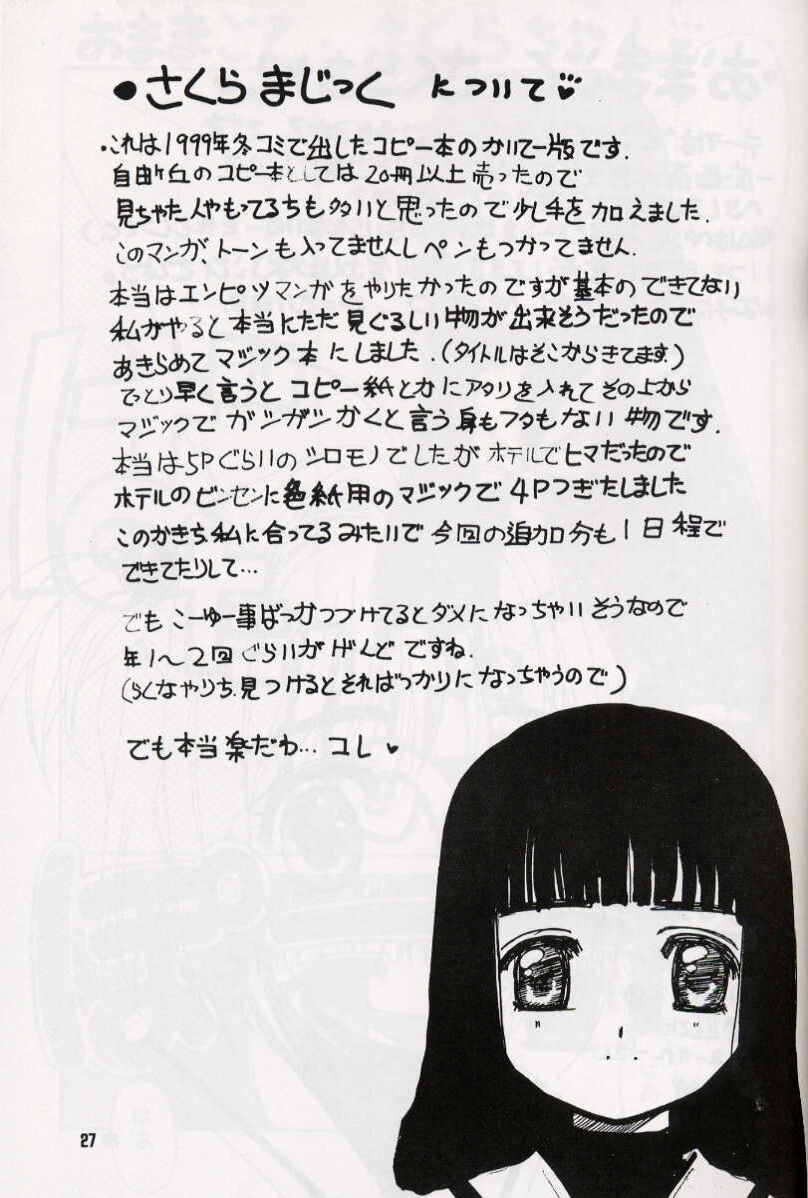 •さくら まじっく について♡
•これは1999年冬コミで出したコピー本のかいてー版です.
自由ヶ丘のコピー本としては20冊以上売ったので
見ちゃた人やもってるちも多いと思ったので少し手を加えました.
このマンガ、トーンも入ってませんしペンもつかってません.
本当はエンピツマンガをやりたかったのですが基本のできてない
私がやると本当にただ見ぐるしい物が出来そうだったので
あきらめてマジック本にしました.(タイトルはそこからきてます.)
てっとり早く言うとコピー紙とかにアタリを入れてその上から
マジックでガシガシかくと言う身もフタもない物です.
本当は5Pぐらいのシロモノでしたがホテルでヒマだったので
ホテルのビンセンに色紙用のマジックで4Pつぎたしました
このかきち、私に合ってるみたいで今回の追加分も1日程で
できてたりして…
でもこーゆー事ばっかつづけてるとダメになっちゃいそうなので
年1〜2回ぐらいがげんどですね.
(らくなやりち、見つけるとそればっかりになっちゃうので)
でも本当楽だわ…コレ♥
27